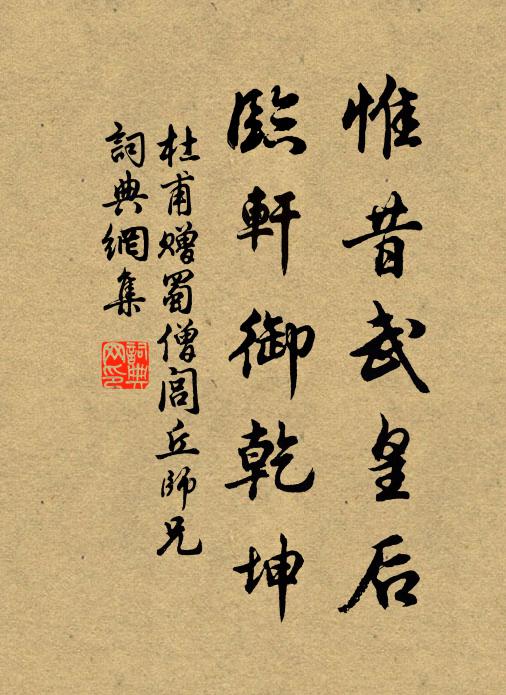 惟昔武皇后
臨軒御乾坤
杜甫贈蜀僧閭丘師兄
詞典網集
詞典网印